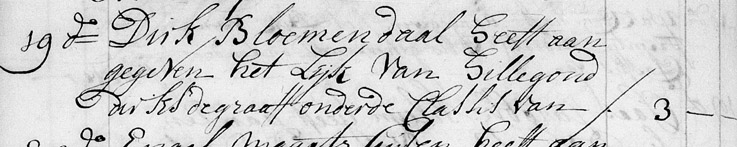 19 do Dirk Bloemendaal heeft aan
gegeven het Lijk van Hillegond
dirks de graaff onder de Classis van / 3 —
do Engel heeft aan